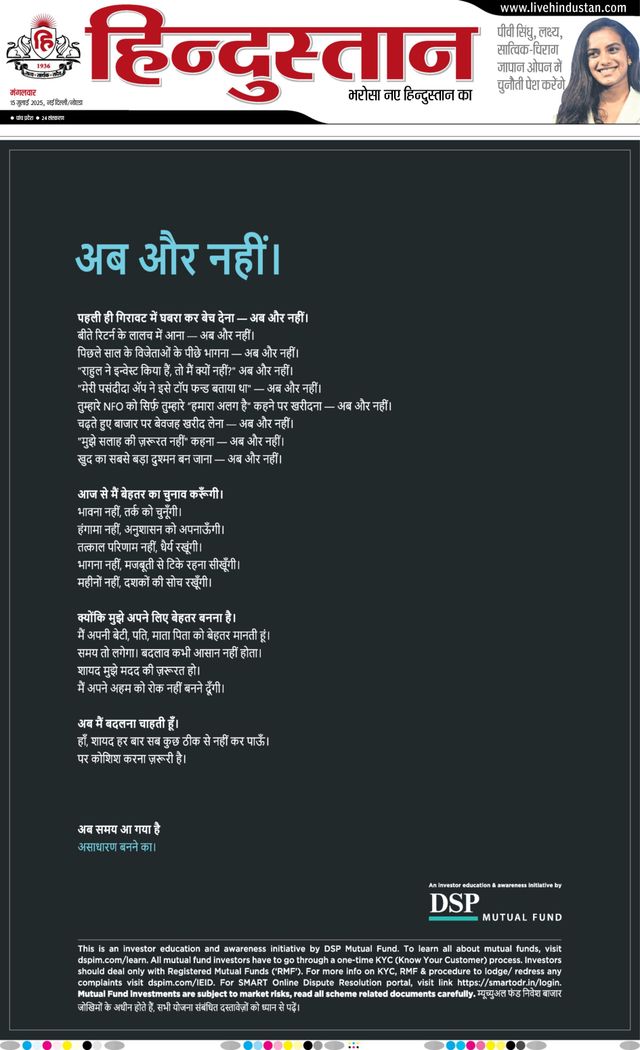 www.livehindustan.com
हि
1936
हिन्दुस्तान
भरोसा नए हिन्दुस्तान का
मंगलवार
15 जुलाई 2025, नई दिल्ली/नोएडा
● पांच प्रदेश ● 24 संस्करण
पीवी सिंधु, लक्ष्य,
सात्विक-चिराग
जापान ओपन में
चुनौती पेश करेंगे
अब और नहीं।
पहली ही गिरावट में घबरा कर बेच देना — अब और नहीं।
बीते रिटर्न के लालच में आना — अब और नहीं।
पिछले साल के विजेताओं के पीछे भागना — अब और नहीं।
"राहुल ने इन्वेस्ट किया हैं, तो मैं क्यों नहीं?" अब और नहीं।
"मेरी पसंदीदा ॲप ने इसे टॉप फन्ड बताया था" — अब और नहीं।
तुम्हारे NFO को सिर्फ़ तुम्हारे "हमारा अलग है" कहने पर खरीदना — अब और नहीं।
चढ़ते हुए बाजार पर बेवजह खरीद लेना — अब और नहीं।
"मुझे सलाह की ज़रूरत नहीं" कहना — अब और नहीं।
खुद का सबसे बड़ा दुश्मन बन जाना — अब और नहीं।
आज से मैं बेहतर का चुनाव करूँगी।
भावना नहीं, तर्क को चुनूँगी।
हंगामा नहीं, अनुशासन को अपनाऊँगी।
तत्काल परिणाम नहीं, धैर्य रखूंगी।
भागना नहीं, मजबूती से टिके रहना सीखूँगी।
महीनों नहीं, दशकों की सोच रखूँगी।
क्योंकि मुझे अपने लिए बेहतर बनना है।
मैं अपनी बेटी, पति, माता पिता को बेहतर मानती हूं।
समय तो लगेगा। बदलाव कभी आसान नहीं होता।
शायद मुझे मदद की ज़रूरत हो।
मैं अपने अहम को रोक नहीं बनने दूँगी।
अब मैं बदलना चाहती हूँ।
हाँ, शायद हर बार सब कुछ ठीक से नहीं कर पाऊँ।
पर कोशिश करना ज़रूरी है।
अब समय आ गया है
असाधारण बनने का।
An investor education & awareness initiative by
DSP
MUTUAL FUND
This is an investor education and awareness initiative by DSP Mutual Fund. To learn all about mutual funds, visit
dspim.com/learn. All mutual fund investors have to go through a one-time KYC (Know Your Customer) process. Investors
should deal only with Registered Mutual Funds ('RMF'). For more info on KYC, RMF & procedure to lodge/ redress any
complaints visit dspim.com/IEID. For SMART Online Dispute Resolution portal, visit link https://smartodr.in/login.
Mutual Fund investments are subject to market risks, read all scheme related documents carefully. म्यूच्युअल फंड निवेश बाजार
जोखिमों के अधीन होते हैं, सभी योजना संबंधित दस्तावेज़ों को ध्यान से पढ़ें।